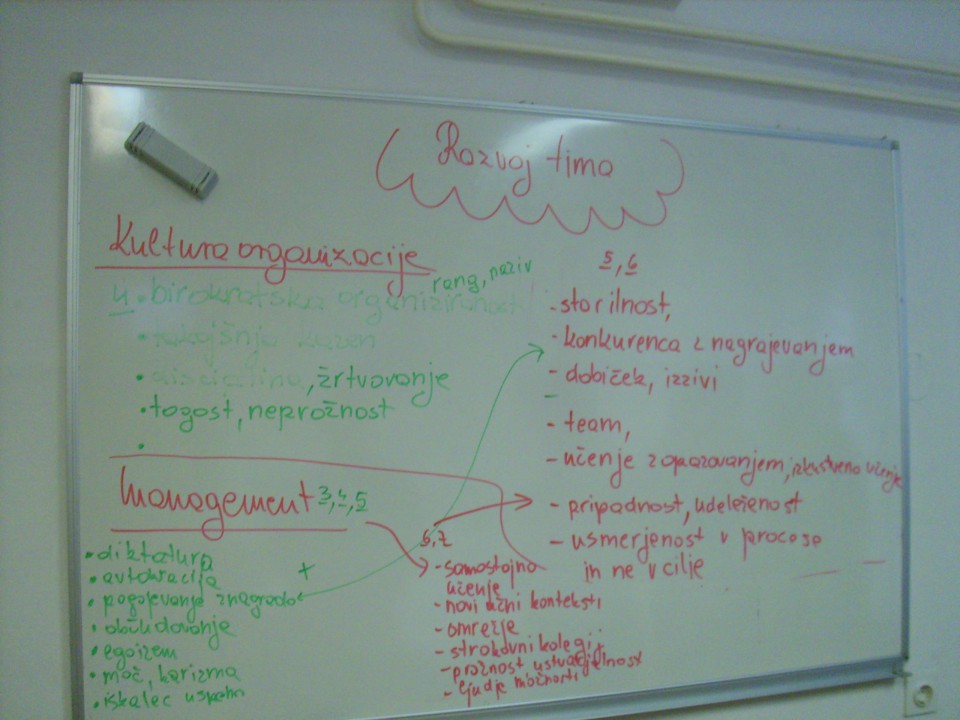 Razvoj tima
Kultura organizacije
4 • birokratska organiziranost
rang, naziv
• takojšnja kazen
• disciplina, žrtvovanje
• togost, neprožnost
•
management 3, 4, 5
• diktatura
• avtokracija
+
• pogojevanje z nagrado
• občudovanje
• egoizem
• moč, karizma
• iskalec uspeha
5, 6
- storilnost,
- konkurenca z nagrajevanjem
- dobiček, izzivi
-
- team,
- učenje z opazovanjem, izkustveno učenje
- pripadnost, udeleženost
- usmerjenost v procese
in ne v cilje
6, 7
- samostojno
učenje
- novi učni konteksti
- omrežje
- strokovni kolegij
- prožnost ustvarjalnost
- ljudje možnosti